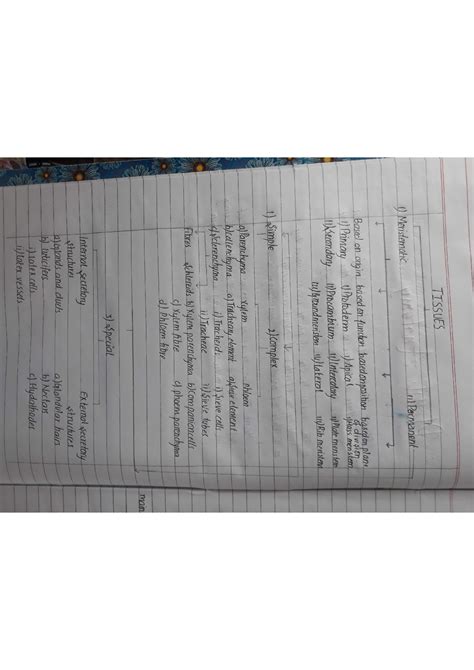 TISSUES
i) Meristematic ii) Permanent
Based on origin based on function based on position based on plane
of division
i) Primary i) Protoderm i) Apical i) Mass meristem
ii) Secondary ii) Procambium ii) Intercalary ii) Plate meristem
iii) Ground meristem iii) Lateral iii) Rib meristem
1) Simple 2) Complex
a) Parenchyma Xylem Phloem
b) Collenchyma a) Tracheary element a) Sieve element
c) Sclerenchyma i) Tracheid i) Sieve cells
ii) Tracheae ii) Sieve tubes
Fibres Sclereids b) Xylem parenchyma b) Companion cells
c) Xylem fibre c) phloem parenchyma
d) Phloem fibre
3) Special
Internal secretory External secretory
structures structures
a) glands and ducts a) glandular hairs
b) laticifers b) Nectaries
i) Latex cells c) Hydathodes
ii) latex vessels